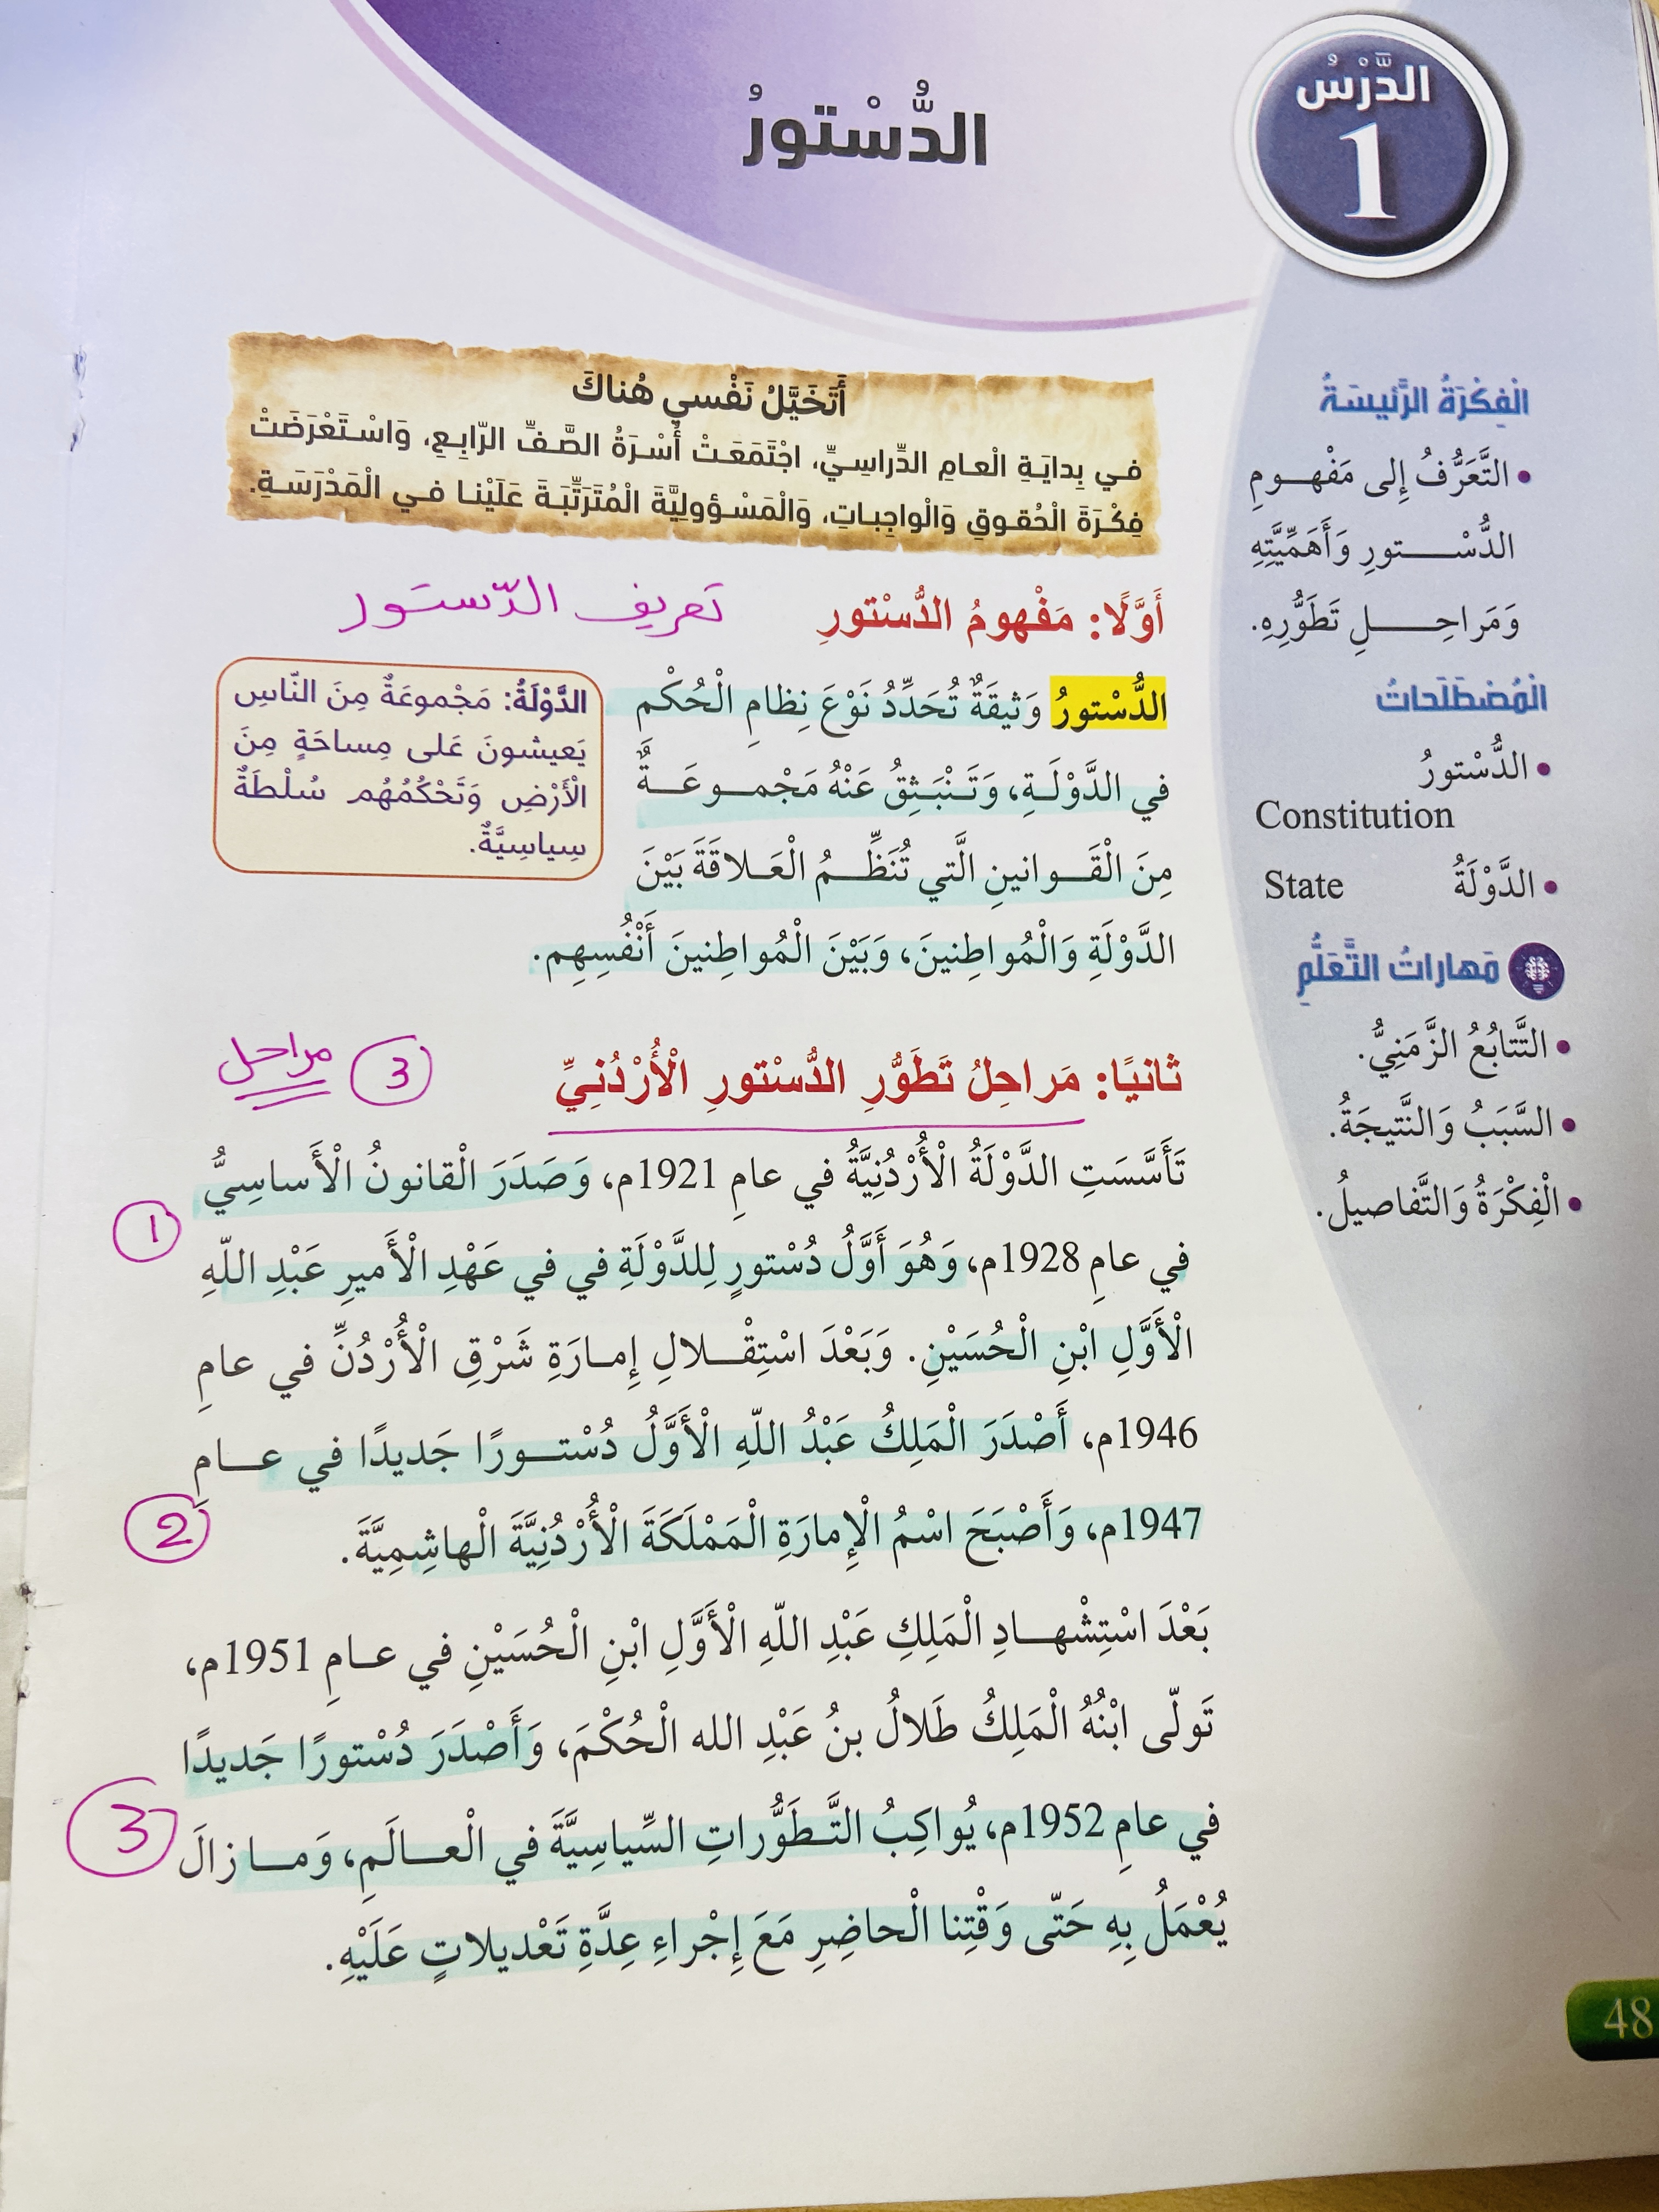 الدَّرْسُ
1
الدُّسْتورُ
الْفِكْرَةُ الرَّئيسَةُ
• التَّعَرُّفُ إِلى مَفْهومِ
الدُّسْتورِ وَأَهَمِّيَّتِهِ
وَمَراحِلِ تَطَوُّرِهِ.
الْمُصْطَلَحاتُ
• الدُّسْتورُ
Constitution
• الدَّوْلَةُ State
مَهاراتُ التَّعَلُّمِ
• التَّتابُعُ الزَّمَنِيُّ.
• السَّبَبُ وَالنَّتيجَةُ.
• الْفِكْرَةُ وَالتَّفاصيلُ.
أَتَخَيَّلُ نَفْسي هُناكَ
في بِدايَةِ الْعامِ الدِّراسِيِّ، اجْتَمَعَتْ أُسْرَةُ الصَّفِّ الرّابِعِ، وَاسْتَعْرَضَتْ
فِكْرَةَ الْحُقوقِ وَالْواجِباتِ، وَالْمَسْؤولِيَّةَ الْمُتَرَتِّبَةَ عَلَيْنا في الْمَدْرَسَةِ.
أَوَّلًا: مَفْهومُ الدُّسْتورِ
تعريف الدّستور
الدُّسْتورُ وَثيقَةٌ تُحَدِّدُ نَوْعَ نِظامِ الْحُكْم
في الدَّوْلَةِ، وَتَنْبَثِقُ عَنْهُ مَجْموعَةٌ
مِنَ الْقَوانينِ الَّتي تُنَظِّمُ الْعَلاقَةَ بَيْنَ
الدَّوْلَةِ وَالْمُواطِنينَ، وَبَيْنَ الْمُواطِنينَ أَنْفُسِهِم.
الدَّوْلَةُ: مَجْموعَةٌ مِنَ النّاسِ
يَعيشونَ عَلى مِساحَةٍ مِنَ
الْأَرْضِ وَتَحْكُمُهُم سُلْطَةٌ
سِياسِيَّةٌ.
ثانيًا: مَراحِلُ تَطَوُّرِ الدُّسْتورِ الْأُرْدُنِيِّ
3 مراحل
تَأَسَّسَتِ الدَّوْلَةُ الْأُرْدُنِيَّةُ في عامِ 1921م، وَصَدَرَ الْقانونُ الْأَساسِيُّ
1
في عامِ 1928م، وَهُوَ أَوَّلُ دُسْتورٍ لِلدَّوْلَةِ في في عَهْدِ الْأَميرِ عَبْدِ اللّهِ
الْأَوَّلِ ابْنِ الْحُسَيْنِ. وَبَعْدَ اسْتِقْلالِ إِمارَةِ شَرْقِ الْأُرْدُنِّ في عامِ
1946م، أَصْدَرَ الْمَلِكُ عَبْدُ اللّهِ الْأَوَّلُ دُسْتورًا جَديدًا في عامِ
1947م، وَأَصْبَحَ اسْمُ الْإِمارَةِ الْمَمْلَكَةَ الْأُرْدُنِيَّةَ الْهاشِمِيَّةَ.
2
بَعْدَ اسْتِشْهادِ الْمَلِكِ عَبْدِ اللّهِ الْأَوَّلِ ابْنِ الْحُسَيْنِ في عامِ 1951م،
تَولّى ابْنُهُ الْمَلِكُ طَلالُ بنُ عَبْدِ الله الْحُكْمَ، وَأَصْدَرَ دُسْتورًا جَديدًا
في عامِ 1952م، يُواكِبُ التَّطَوُّراتِ السِّياسِيَّةَ في الْعالَمِ، وَما زالَ
3
يُعْمَلُ بِهِ حَتّى وَقْتِنا الْحاضِرِ مَعَ إِجْراءِ عِدَّةِ تَعْديلاتٍ عَلَيْهِ.
48